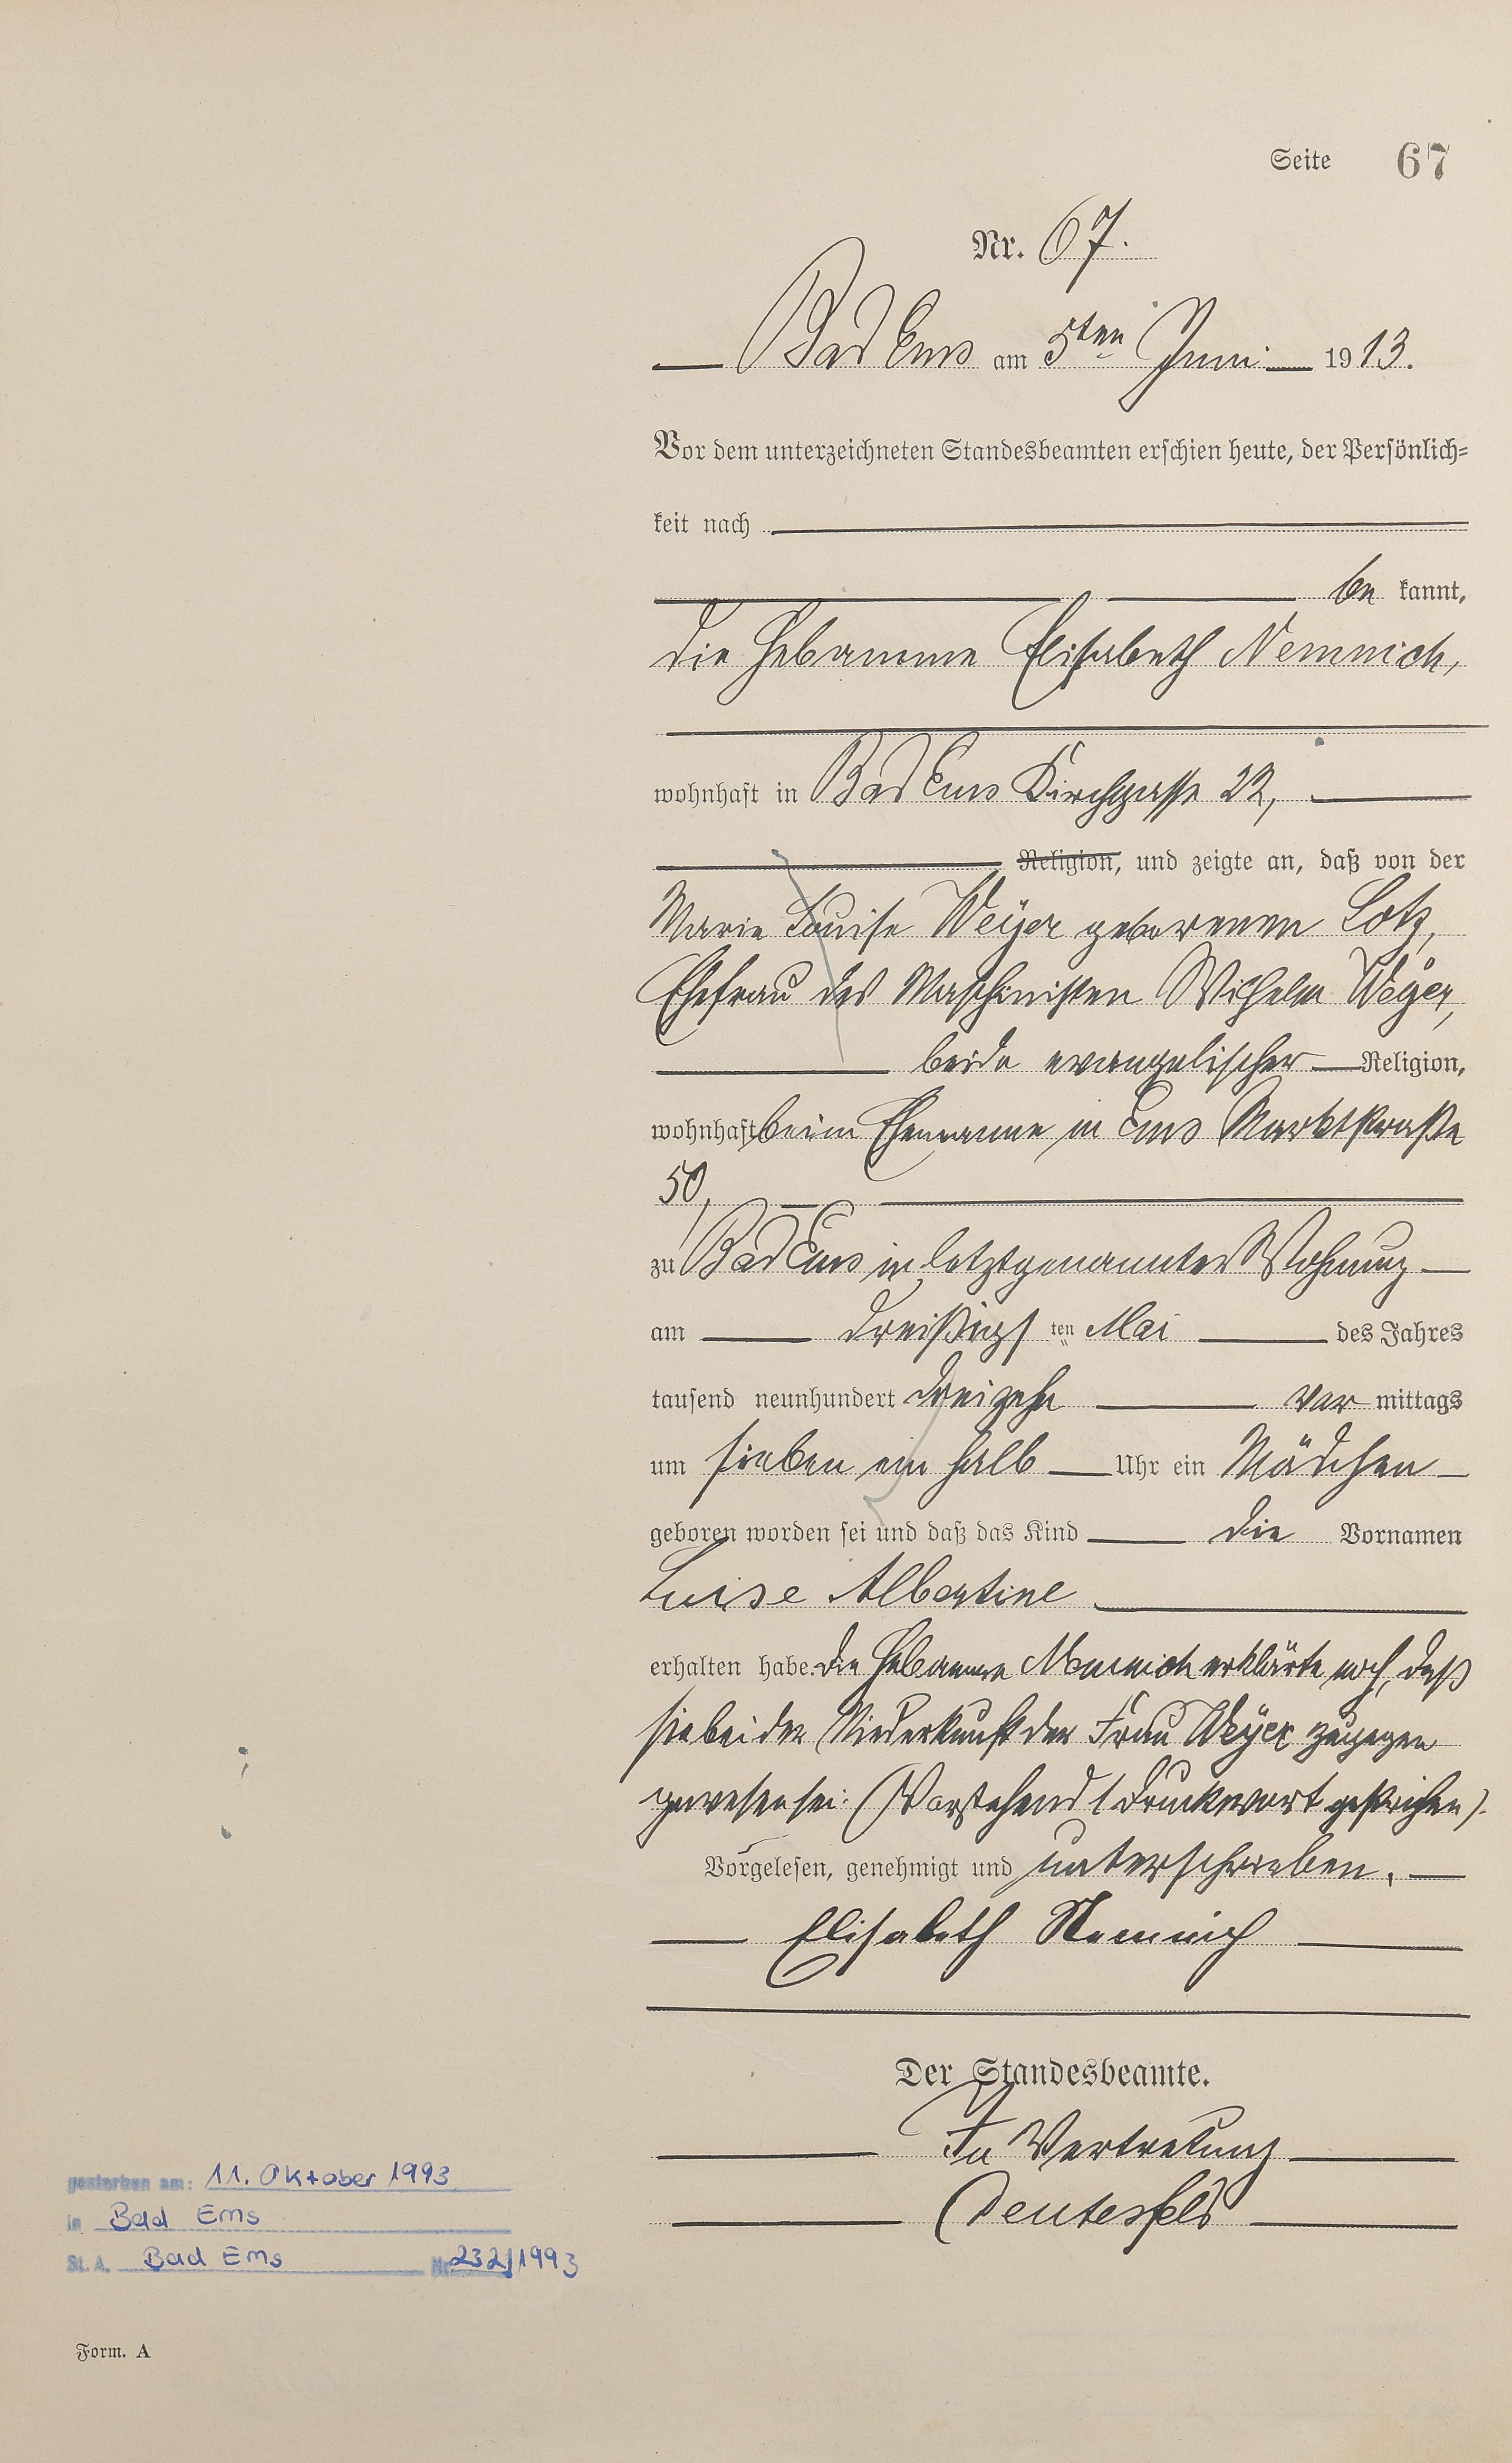 Seite 67
Nr. 67.
Bad Ems am 5ten Juni 1913.
Vor dem unterzeichneten Standesbeamten erschien heute, der Persönlich=
keit nach
be kannt,
die Hebamme Elisabeth Nemnich,
wohnhaft in Bad Ems Kirchgasse 22,
Religion, und zeigte an, daß von der
Marie Louise Weÿer geborenen Lotz,
Ehefrau des Maschinisten Wilhelm Weÿer,
beide evangelischer Religion,
wohnhaft beim Ehemanne in Ems Marktstraße
50,
zu Bad Ems in letztgenannter Wohnung
am dreißigs ten Mai des Jahres
tausend neunhundert dreizehn vor mittags
um sieben ein halb Uhr ein Mädchen
geboren worden sei und daß das Kind die Vornamen
Luise Albertine
erhalten habe. Die Hebamme Nemnich erklärte noch, daß
sie bei der Niederkunft der Frau Weÿer zugegen
gewesen sei. (Vorstehend 1 Druckwort gestrichen).
Vorgelesen, genehmigt und unterschrieben.
Elisabeth Nemnich
Der Standesbeamte.
In Vertretung
gestorben am: 11. Oktober 1993
in Bad Ems
St. A. Bad Ems Nr. 232/1993
Form. A